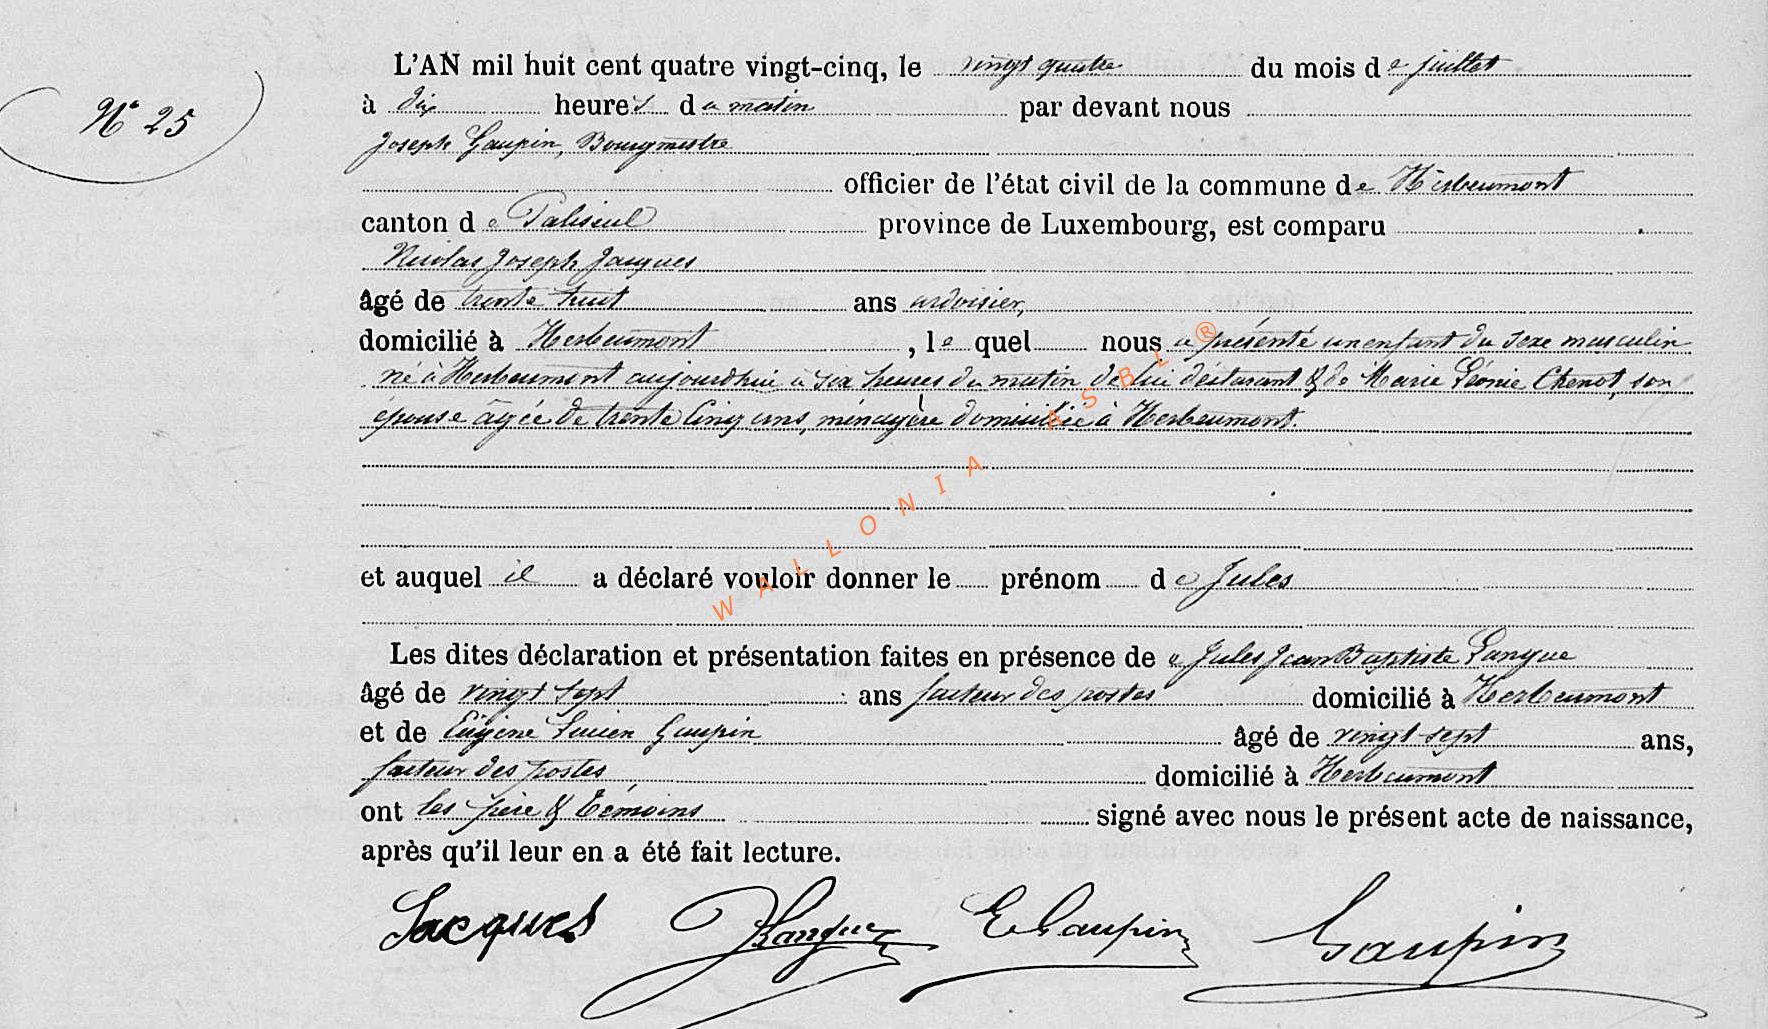 N° 25
L'AN mil huit cent quatre vingt-cinq, le vingt quatre du mois de juillet
à dix heures du matin par devant nous
Joseph Gaupin, Bourgmestre
officier de l'état civil de la commune de Herbeumont
canton de Paliseul province de Luxembourg, est comparu
Nicolas Joseph Jacques
âgé de trente huit ans ardoisier,
domicilié à Herbeumont, lequel nous a présenté un enfant du sexe masculin
né à Herbeumont aujourdhui à six heures du matin de lui déclarant & de Marie Léonie Chenot, son
épouse âgée de trente cinq ans, ménagère domiciliée à Herbeumont.
et auquel il a déclaré vouloir donner le prénom de Jules
Les dites déclaration et présentation faites en présence de Jules Jean Baptiste Langue
âgé de vingt sept ans facteur des postes domicilié à Herbeumont
et de Eugène Lucien Gaupin âgé de vingt sept ans,
facteur des postes domicilié à Herbeumont
ont les père & témoins signé avec nous le présent acte de naissance,
après qu'il leur en a été fait lecture.
Jacques JLangue E Gaupin Gaupin
WALLONIA ASBL®